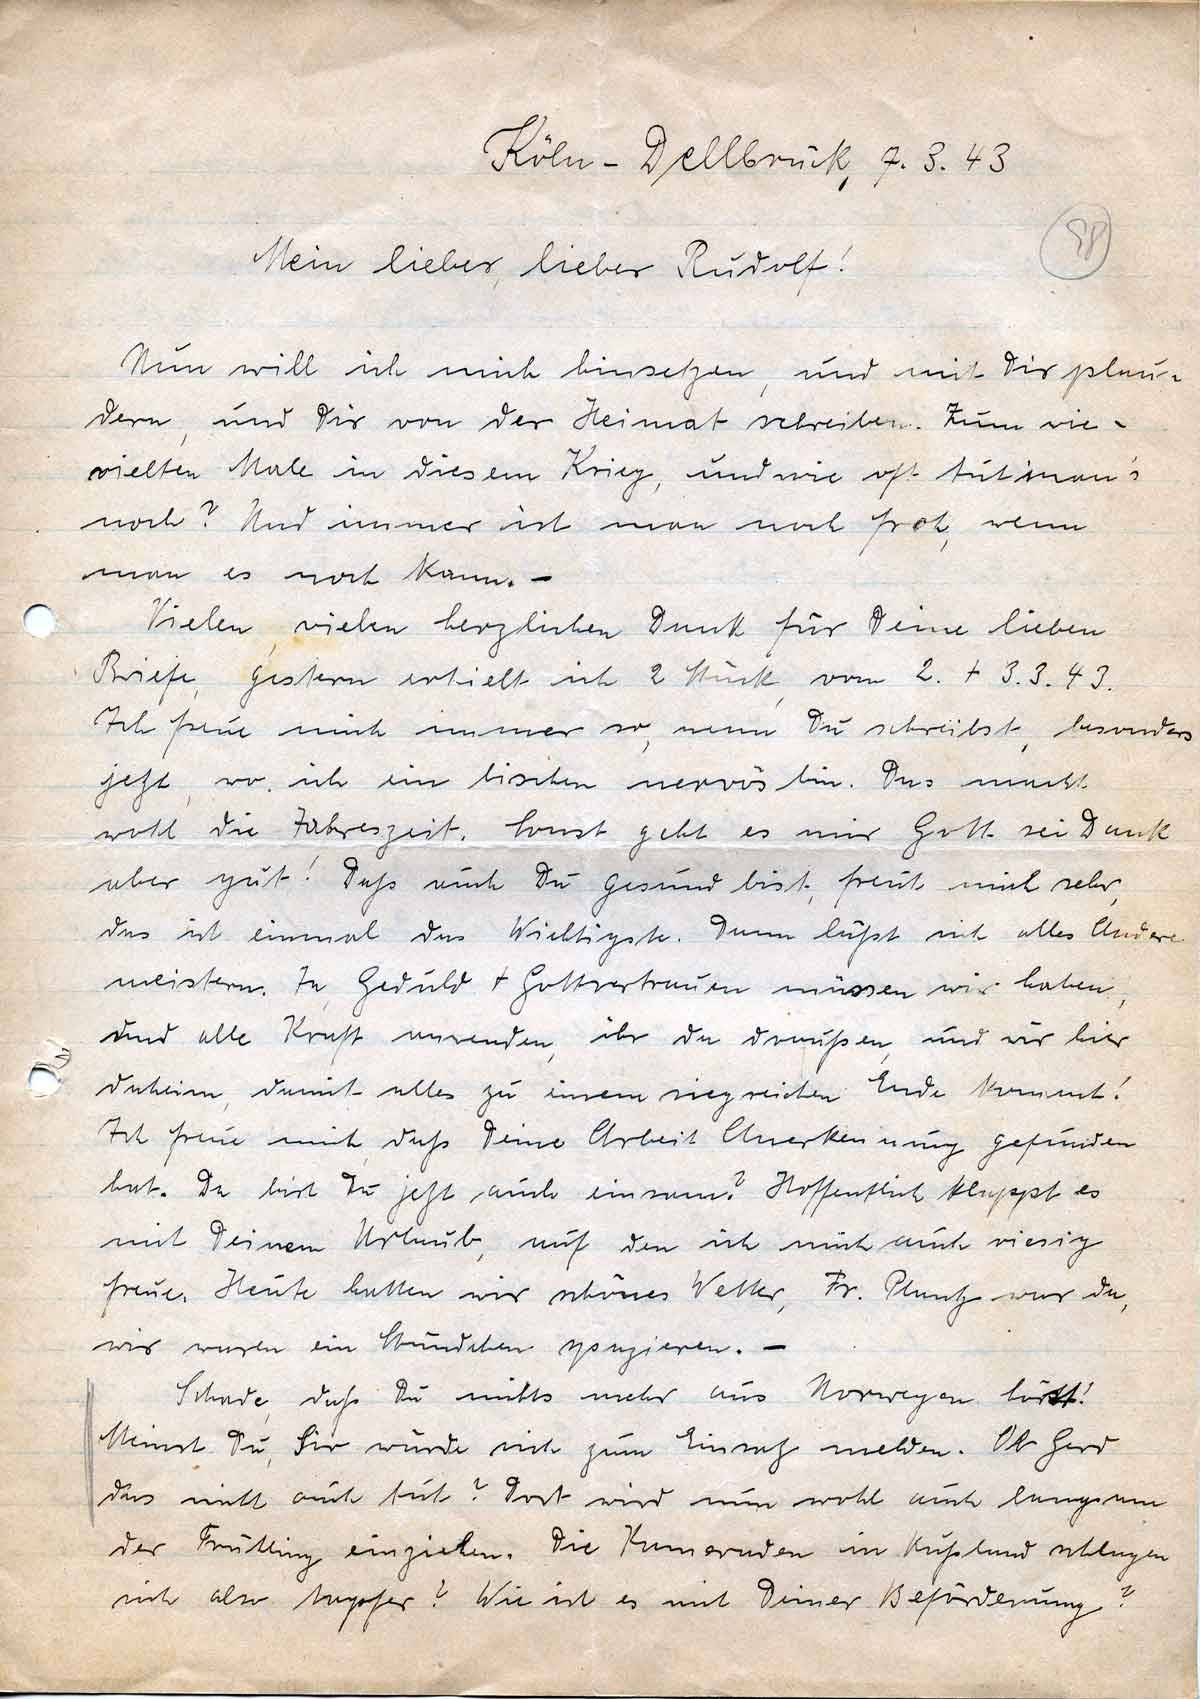 Köln-Dellbrück, 7.3.43
98
Mein lieber, lieber Rudolf!
Nun will ich mich hinsetzen, und mit Dir plau-
dern, und Dir von der Heimat schreiben. Zum wie-
vielten Male in diesem Krieg, und wie oft tut man's
noch? Und immer ist man noch froh, wenn
man es noch kann. –
Vielen, vielen herzlichen Dank für Deine lieben
Briefe, gestern erhielt ich 2 Stück, vom 2. + 3.3.43.
Ich freue mich immer so, wenn Du schreibst, besonders
jetzt, wo ich ein bischen nervös bin. Das macht
wohl die Jahreszeit. Sonst geht es mir Gott sei Dank
aber gut! Daß auch Du gesund bist, freut mich sehr,
das ist einmal das Wichtigste. Dann läßt sich alles Andere
meistern. Ja, Geduld + Gottvertrauen müssen wir haben,
und alle Kraft anwenden, ihr da draußen, und wir hier
daheim, damit alles zu einem siegreichen Ende kommt!
Ich freue mich, daß Deine Arbeit Anerkennung gefunden
hat. Da bist Du jetzt auch einsam? Hoffentlich klappt es
mit Deinem Urlaub, auf den ich mich auch riesig
freue. Heute hatten wir schönes Wetter, Fr. Plantz war da,
wir waren ein Stündchen spazieren. –
Schade, daß Du nichts mehr aus Norwegen hörst!
Meinst Du, würde sich zum Einsatz melden. Ob Gerd
das nicht auch tut? Dort wird nun wohl auch langsam
der Frühling einziehen. Die Kameraden in Rußland schlagen
sich also tapfer? Wie ist es mit Deiner Beförderung?